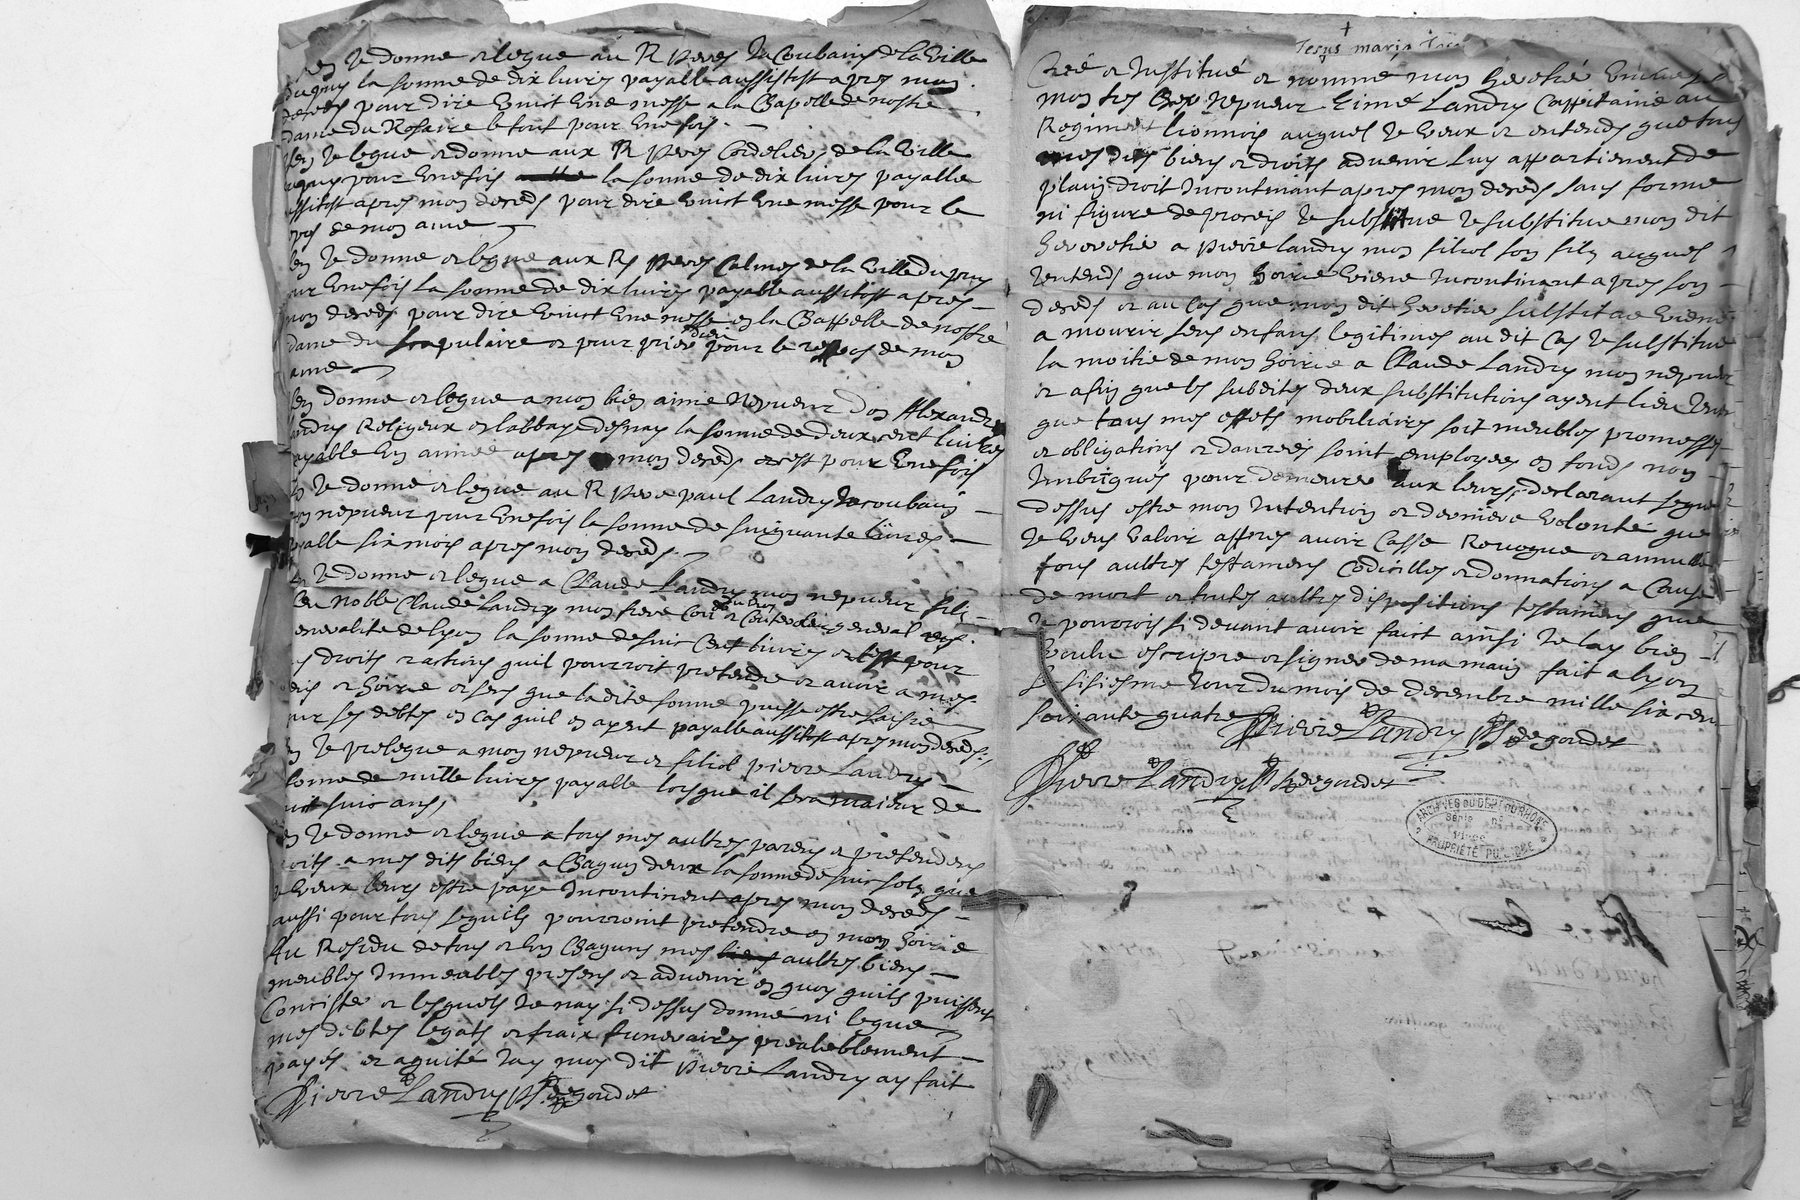 Je donne et legue au R Peres Jacoubains de la Ville
du puy la sonme de dix livres payable aussistost apres mon
deceds pour dire vinct une messe a la Chapelle de nostre
dame du Rosaire le tout pour une fois
Je legue et donne aux R Peres Cordeliers de la Ville
pour une fois la sonme de dix livres payable
apres mon deceds pour dire vinct une messe pour le
de mon ame
Je donne et legue aux R Peres Calmes de la Ville du puy
une fois la sonme de dix livres payable aussitost apres
mon deceds pour dire vinct une messe en la Chappelle de nostre
dame du scapulaire et pour prier dieu pour le repos de mon
ame
donne et legue a mon bien aime nepveur Don Alexandre
Landry Religieux en labbaye desnay la sonme de deux cent livres
payable un annee apres mon deceds et cest pour une fois
Je donne et legue au R Pere paul Landry Jacoubain
mon nepveur pour une fois la sonme de sinquante livres
payable six mois apres mon deceds
Je donne et legue a Claude Landry mon nepveur fils
feu noble Claude Landry mon frere general
de lyon la sonme de sinc Cent livres et cest pour
droits et actions quil pourroit pretendre et avoir a mes
et hoirie et sens que ladite sonme puisse estre saisie
pour ses debtes en cas quil en ayent payable aussitost apres mon deceds
Je prelegue a mon nepveur et filiol pierre Landry
sonme de mille livres payable lorsque il sera majeur de
sinc ans
Je donne et legue a tous mes aultres parens et pretendens
droits a mes dits biens a Chaqun deux la sonme de sinc sols que
Je veux leurs estre paye Incontinent apres mon deceds
aussi pour tous sequils pourroint pretendre en mon hoirie
Au Residu de tous et un Chaquns mes aultres biens
meubles Immeubles presens et advenir en quoy quils puissent
Concister et lesquels Je nay si dessus donné ni legué
mes debtes legats et fraix funeraires prealeblement
payés et aquité Jay moy dit Pierre Landry ay fait
Pierre Landry
Jesus maria
Créé et Institué et nomme mon heretié
mon tres cher nepveur Aimé Landry Cappitaine au
Regiment lionnois auquel Je veux et entends que tous
mes dits biens et droits advenir luy appartienent de
plain droit Incontinant apres mon deceds sans forme
ni figure de proceis Je substitue mon dit
heretié a Pierre landry mon filiol son fils auquel
Jentends que mon hoirie viene Incontinant apres son
deceds et au cas que mon dit heretier substitue viene
a mourir sens enfans legitimes au dit Cas Je substitue
la moitie de mon hoirie a Claude Landry mon nepveur
et afin que les subdites deux substitutions ayent lieu Je veux
que tous mes effets mobiliaires soit meubles promesses
et obligations et danrees soint employees en fonds non
Imbrigués pour demeure aux leurs declarant seque
dessus estre mon Intention et derniere volonté que
Je veus valoir appres avoir Casse Revoque et annulle
tous aultres testamens Codicilles et donnations a Cause
de mort et toutes aultres dispositions testamens que
Je pourrois si devant avoir fait ainsi Je lay bien
voulu escripre et signer de ma main fait a lyon
Le sisiesme Jour du mois de decembre mille six cen
soixante quatre Pierre Landry
Pierre Landry
ARCHIVES DU DEPT DU RHONE
Série
PROPRIÉTÉ PUBLIQUE